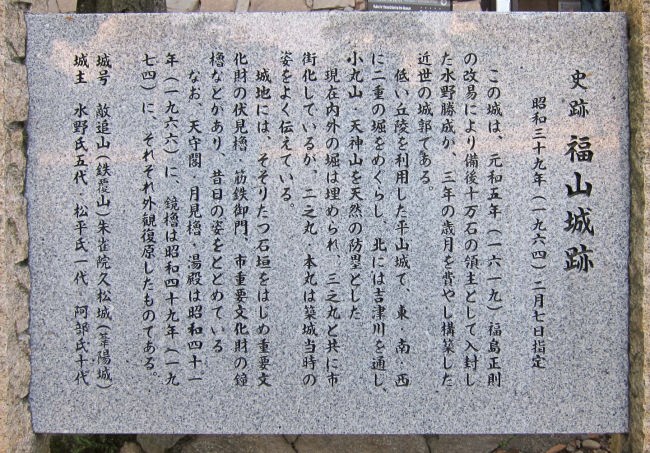 史跡 福山城跡
昭和三十九年(一九六四)二月七日指定
この城は、元和五年(一六一九)福島正則
の改易により備後十万石の領主として入封し
た水野勝成が、三年の歳月を費やし構築した
近世の城郭である。
低い丘陵を利用した平山城で、東・南・西
に二重の堀をめぐらし、北には吉津川を通し、
小丸山・天神山を天然の防塁とした
現在内外の堀は埋められ、三之丸と共に市
街化しているが、二之丸・本丸は築城当時の
姿をよく伝えている。
城地には、そそりたつ石垣をはじめ重要文
化財の伏見櫓、筋鉄御門、市重要文化財の鐘
櫓などがあり、昔日の姿をとどめている
なお、天守閣、月見櫓・湯殿は昭和四十一
年(一九六六)に、鏡櫓は昭和四十九年(一九
七四)に、それぞれ外観復原したものである。
城号 敵追山(鉄覆山)朱雀院久松城(葦陽城)
城主 水野氏五代 松平氏一代 阿部氏十代